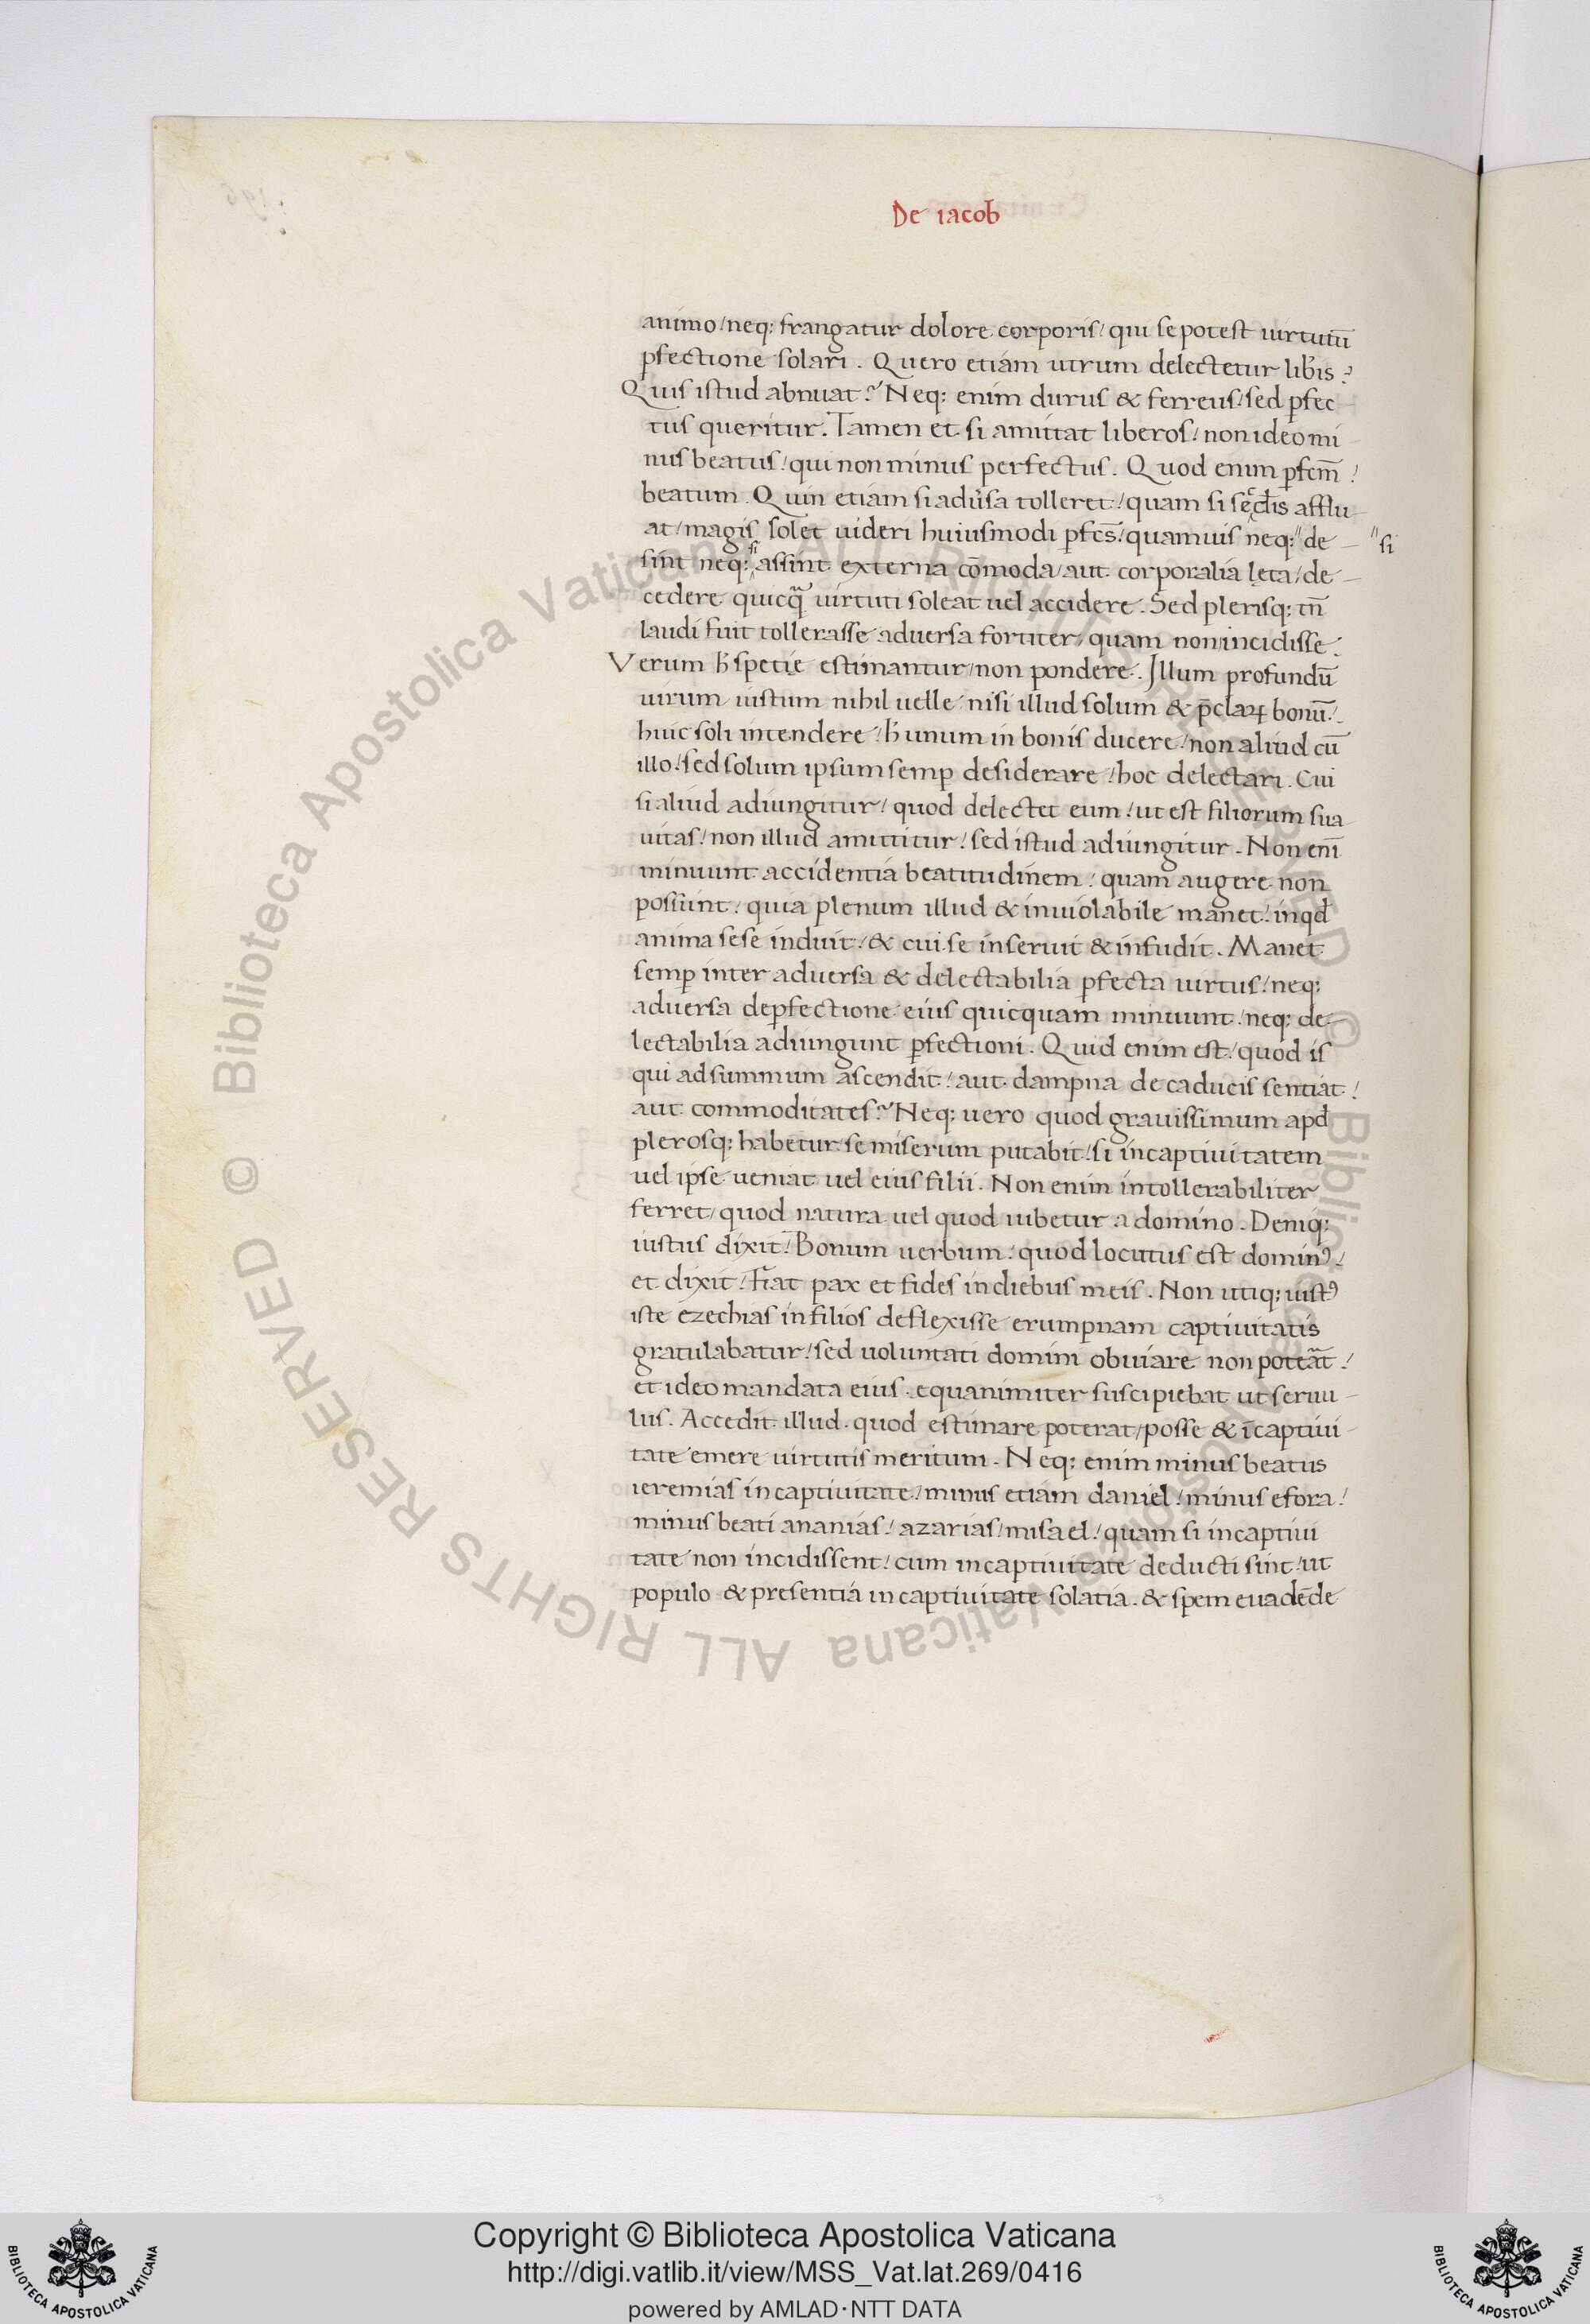 De iacob
animo / neq; frangatur dolore corporis / qui se potest uirtutū
ꝑfectione solari . Quero etiam utrum delectetur lib̄is ?
Quis istud abnuat ? Neq; enim durus & ferreus / sed ꝑfec
tus queritur . Tamen et si amittat liberos / non ideo mi
nus beatus / qui non minus perfectus . Quod enim ꝑfcm̄ /
beatum . Quin etiam si adūsa tolleret / quam si secd̄is afflu
at / magis solet uideri huiusmodi ꝑfcs̄ / quamuis neq; " de " si
sint neq; si assint externa cōmoda / aut corporalia lęta / de
cedere quicq̄ uirtuti soleat uel accidere . Sed plerisq; tn̄
laudi fuit tollerasse aduersa fortiter / quam non incidisse .
Verum h̄ specie estimantur / non pondere . Illum profundū
uirum iustum nihil uelle nisi illud solum & p̄claꝝ bonū /
huic soli intendere / h̄ unum in bonis ducere / non aliud cū
illo / sed solum ipsum semꝑ desiderare / hoc delectari . Cui
si aliud adiungitur / quod delectet eum / ut est filiorum sua
uitas / non illud amittitur / sed istud adiungitur . Non eni̅
minuunt accidentia beatitudinem / quam augere non
possunt / quia plenum illud & inuiolabile manet / in qđ
anima sese induit / & cui se inseruit & infudit . Manet
semꝑ inter aduersa & delectabilia ꝑfecta uirtus / neq;
aduersa de ꝑfectione eius quicquam minuunt / neq; de
lectabilia adiungunt ꝑfectioni . Quid enim est / quod is
qui ad summum ascendit / aut dampna de caducis sentiat /
aut commoditates ? Neq; uero quod grauissimum apđ
plerosq; habetur / se miserum putabit / si in captiuitatem
uel ipse ueniat uel eius filii . Non enim intollerabiliter
ferret / quod natura uel quod iubetur a domino . Deniq;
iustus dixit / Bonum uerbum / quod locutus est dominꝰ /
et dixit / Fiat pax et fides in diebus meis . Non utiq; iustꝰ
iste ezechias in filios deflexisse erumpnam captiuitatis
gratulabatur / sed uoluntati domini obuiare non poteat̄ /
et ideo mandata eius equanimiter suscipiebat ut seruu
lus . Accedit illud quod estimare poterat / posse & ī captiui
tate emere uirtutis meritum . Neq; enim minus beatus
ieremias in captiuitate / minus etiam daniel / minus efora /
minus beati ananias / azarias / misael / quam si in captiui
tate non incidissent / cum in captiuitate deducti sint / ut
populo & presentia in captiuitate solatia . & spem euadēde
Copyright © Biblioteca Apostolica Vaticana
http://digi.vatlib.it/view/MSS_Vat.lat.269/0416
powered by AMLAD·NTT DATA
© Biblioteca Apostolica Vaticana ALL RIGHTS RESERVED
© Biblioteca Apostolica Vaticana ALL RIGHTS RESERVED
BIBLIOTECA APOSTOLICA VATICANA
BIBLIOTECA APOSTOLICA VATICANA